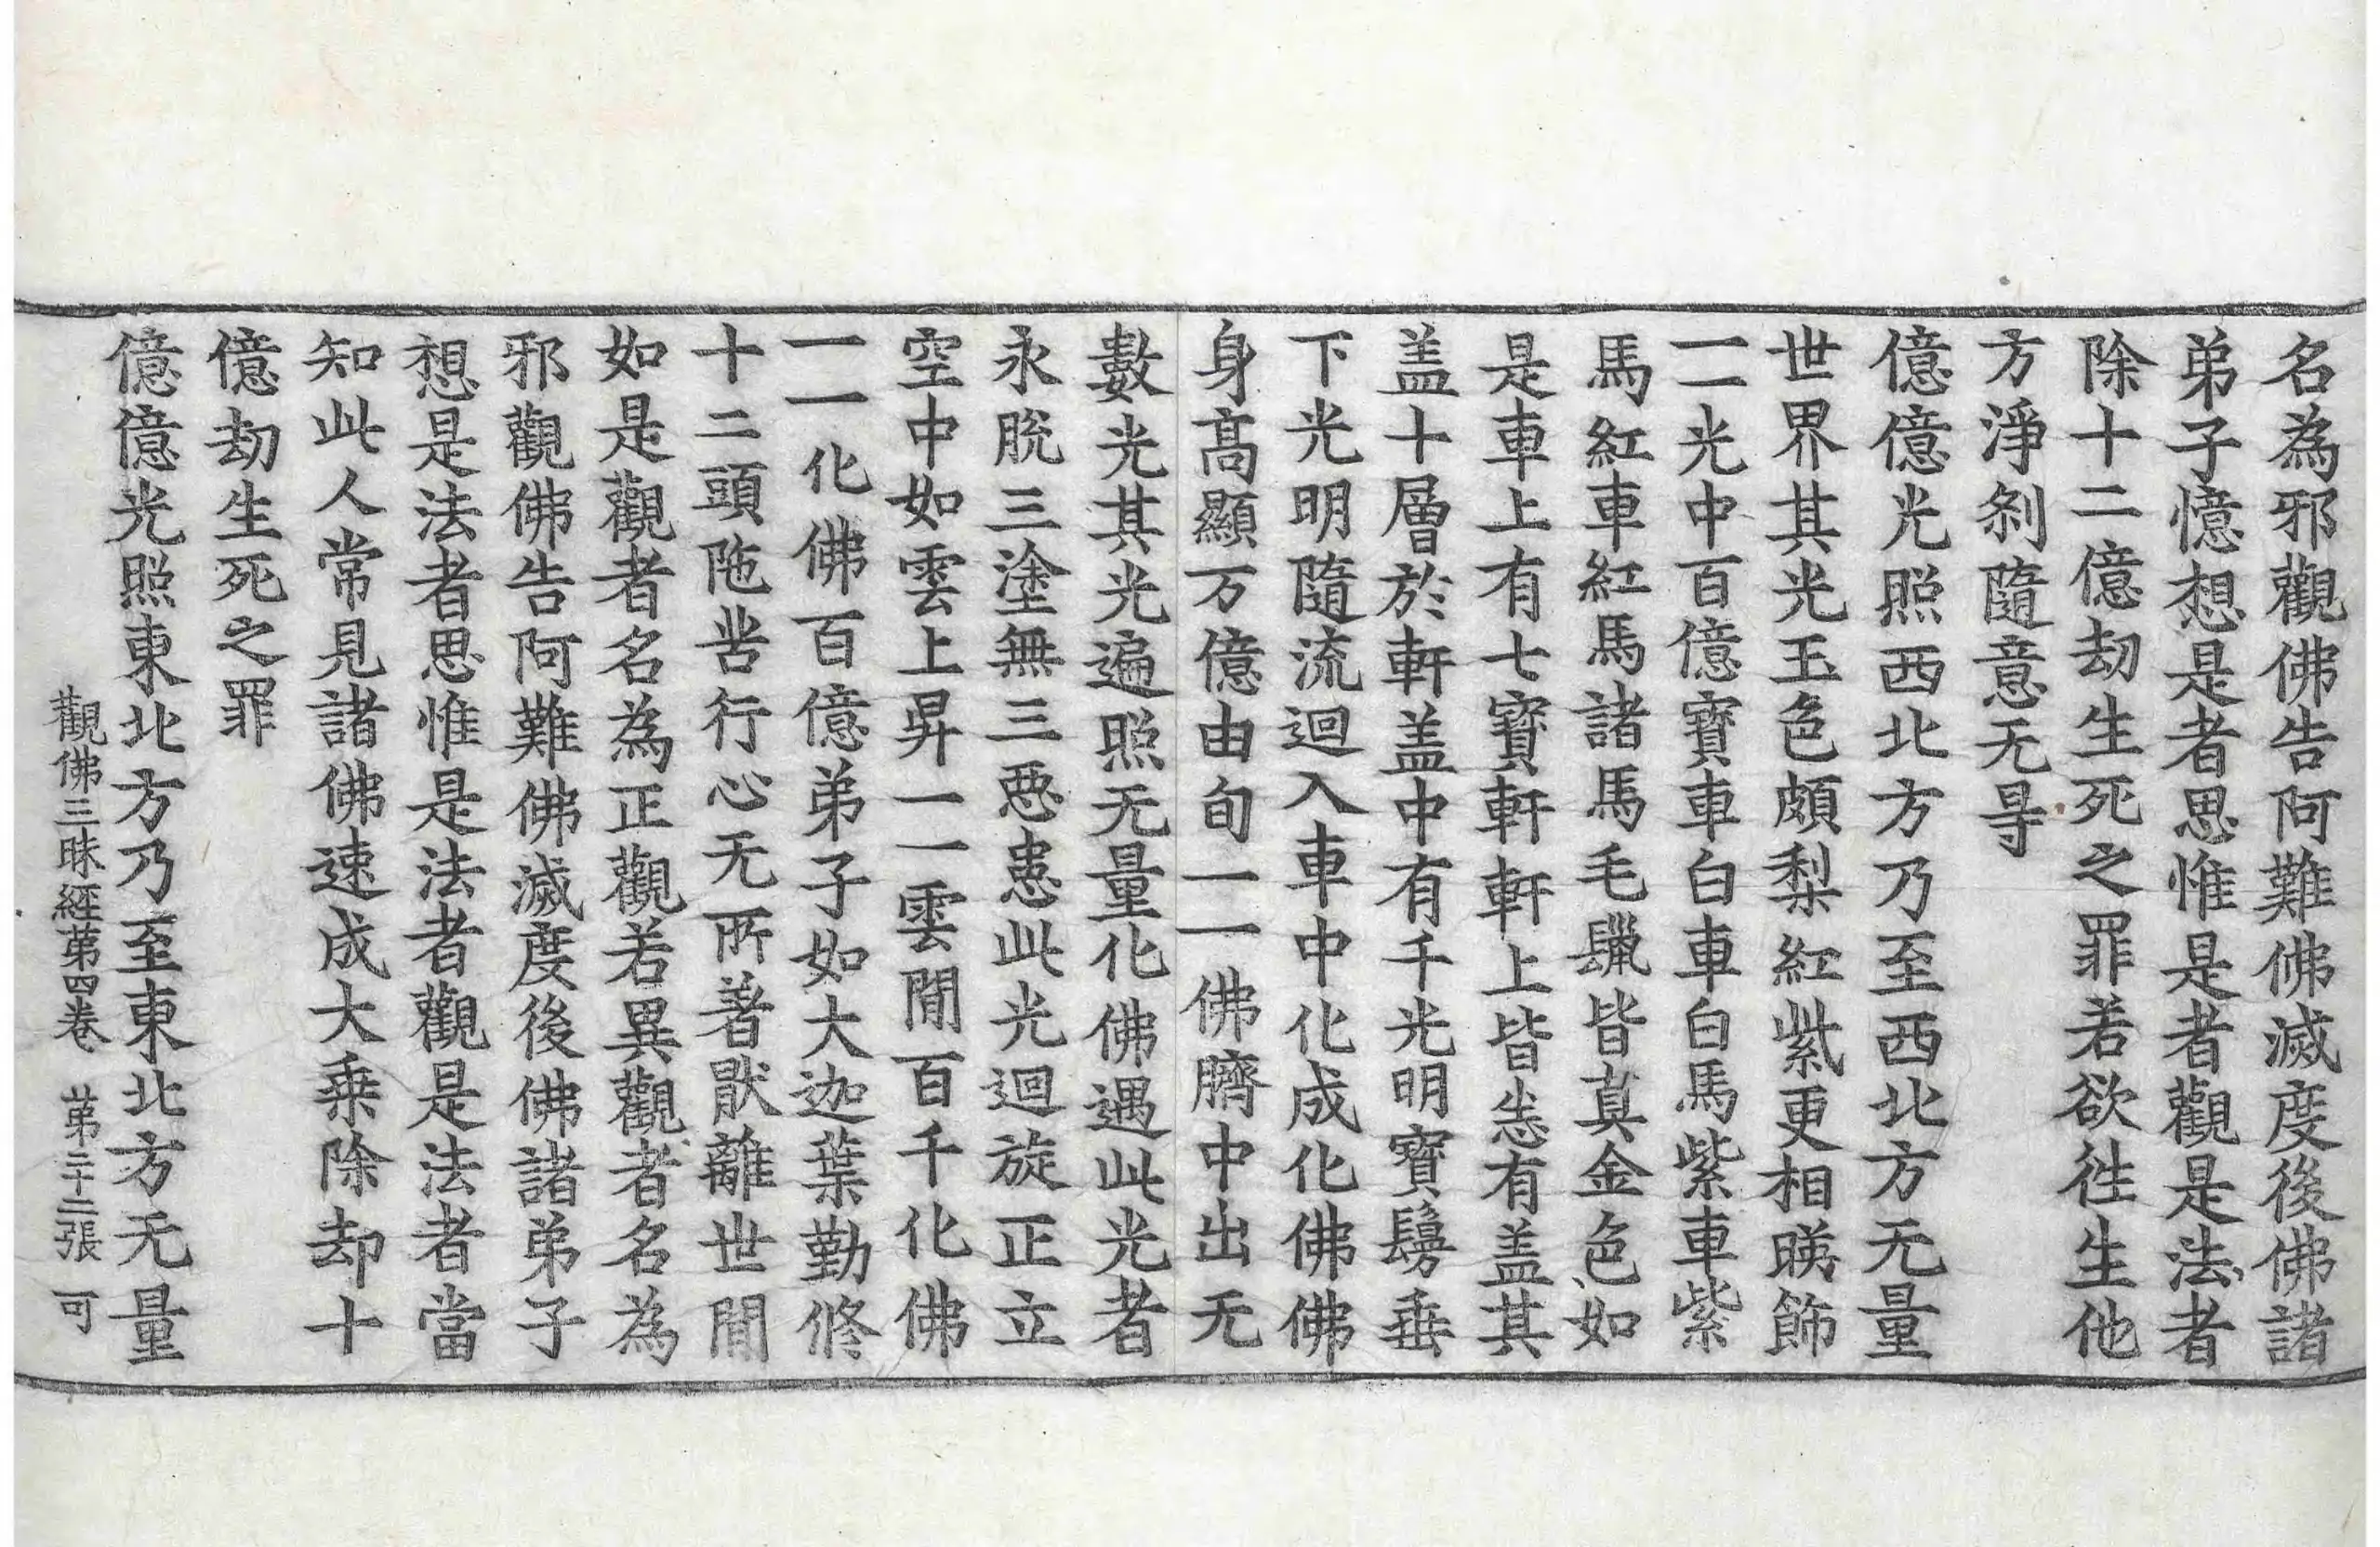 名為邪觀佛告阿難佛滅度後佛諸
弟子憶想是者思惟是者觀是法者
除十二億劫生死之罪若欲往生他
方淨刹隨意无㝵
億億光照西北方乃至西北方无量
世界其光玉色頗梨紅紫更相暎飾
一一光中百億寶車白車白馬紫車紫
馬紅車紅馬諸馬毛䭷皆真金色如
是車上有七寶軒軒上皆悉有盖其
盖十層於軒盖中有千光明寶鬘垂
下光明隨流迴入車中化成化佛佛
身高顯万億由旬一一佛臍中出无
數光其光遍照无量化佛遇此光者
永脫三塗無三惡患此光迴旋正立
空中如雲上昇一一雲間百千化佛
一一化佛百億弟子如大迦葉勤修
十二頭陁苦行心无所著猒離世間
如是觀者名為正觀若異觀者名為
邪觀佛告阿難佛滅度後佛諸弟子
想是法者思惟是法者觀是法者當
知此人常見諸佛速成大乗除却十
億劫生死之罪
億億光照東北方乃至東北方无量
觀佛三昧經第四卷 第二十二張 可